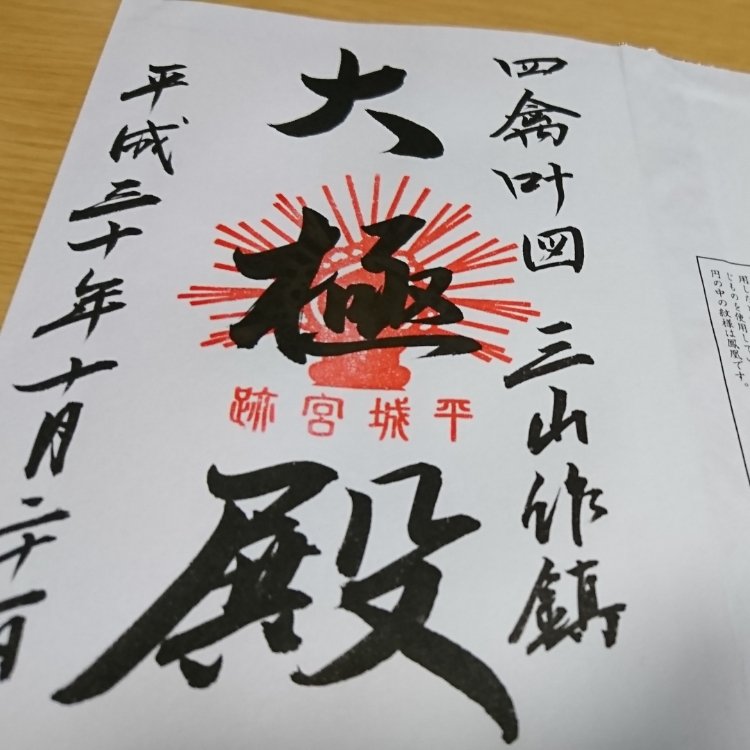 用した
じものを使用して
円の中の紋様は鳳凰です。
四禽叶図 三山作鎮
大極殿
平城宮跡
平成三十年十月二十一日